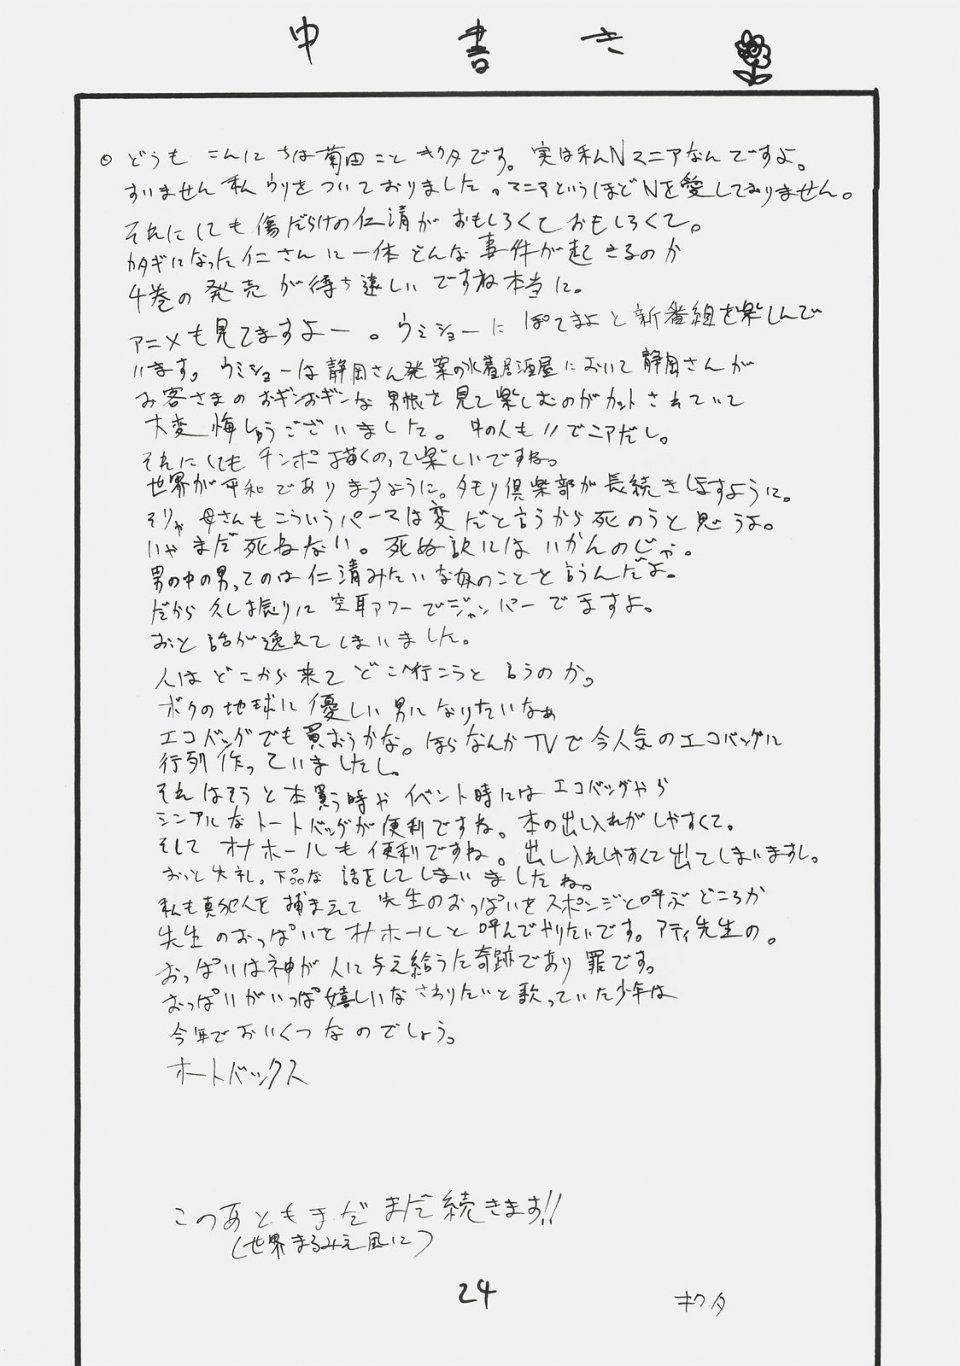 中書き
。どうも こんにちは菊田こと キクタです。実は私Nマニアなんですよ。
すいません私ウソをついておりました。マニアというほどNを愛しておりません。
それにしても傷だらけの仁清がおもしろくておもしろくて。
カタギになった仁さんに一体どんな事件が起きるのか
4巻の発売が待ち遠しいですね本当に。
アニメも見てますよー。ウミショーにぽてまよと新番組を楽しんで
います。ウミショーは静岡さん発案の水着居酒屋において静岡さんが
お客さまのおギンおギンな男根を見て楽しむのがカットされていて
大変悔しゅうございました。中の人も〃でニアだし。
それにしてもチンポ描くのって楽しいですね。
世界が平和でありますように。タモリ倶楽部が長続きしますように。
そりゃ母さんもこういうパースは変だと言うから死のうと思うよ。
いやまだ死ねない。死ぬ訳にはいかんのじゃ。
男の中の男ってのは仁清みたいな奴のことを言うんだよ。
だから久し振りに空耳アワーでジャンパーでますよ。
おっと話が逸れてしまいました。
人はどこから来てどこへ行こうと言うのか。
ボクの地球に優しい男になりたいなぁ
エコバッグでも買おうかな。ほらなんかTVで今人気のエコバッグに
行列作っていましたし。
それはそうと本買う時や イベント時にはエコバッグやら
シンプルなトートバッグが便利ですね。本の出し入れがしやすくて。
そして オナホールも便利ですね。出し入れしやすくて出てしまいますし。
おっと失礼。下品な 話をしてしまいましたね。
私も真犯人を捕まえて 先生のおっぱいをスポンジと呼ぶどころか
先生のおっぱいをオナホールと呼んでやりたいです。アティ先生の。
おっぱいは神が人に与え給うた奇跡であり罪です。
おっぱいがいっぱ嬉しいなさわりたいと歌っていた少年は
今年でおいくつなのでしょう。
オートバックス
このあともまだまだ続きます!!
(世界まるみえ風に)
24
キクタ